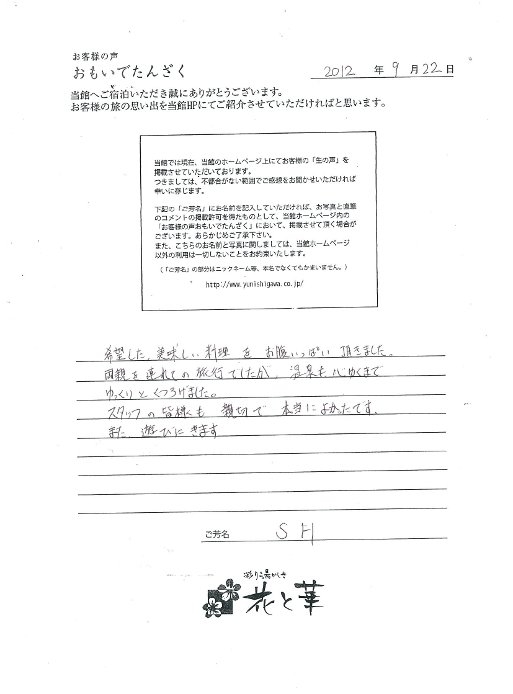 お客様の声
おもいでたんざく
2012 年 9月 22日
当館へご宿泊いただき誠にありがとうございます。
お客様の旅の思い出を当館HPにてご紹介させていただければと思います。
当館では現在、当館のホームページ上にてお客様の「生の声」を
掲載させていただいております。
つきましては、不都合がない範囲でご感想をお聞かせいただければ
幸いに存じます。
下記の「ご芳名」にお名前を記入していただければ、お写真と直筆
のコメントの掲載許可を得たものとして、当館ホームページ内の
「お客様の声おもいでたんざく」において、掲載させて頂く場合が
ございます。あらかじめご了承下さい。
また、こちらのお名前と写真に関しましては、当館ホームページ
以外の利用は一切しないことをお約束いたします。
（「ご芳名」の部分はニックネーム等、本名でなくてもかまいません。）
http://www.yunishigawa.co.jp/
希望した、美味しい料理を お腹いっぱい 頂きました。
両親を連れての旅行でしたが、温泉も心ゆくまで
ゆっくりとくつろげました。
スタッフの皆様も 親切で 本当によかったです。
また、遊びにきます
ご芳名 SH
彩り湯かしき
花と華